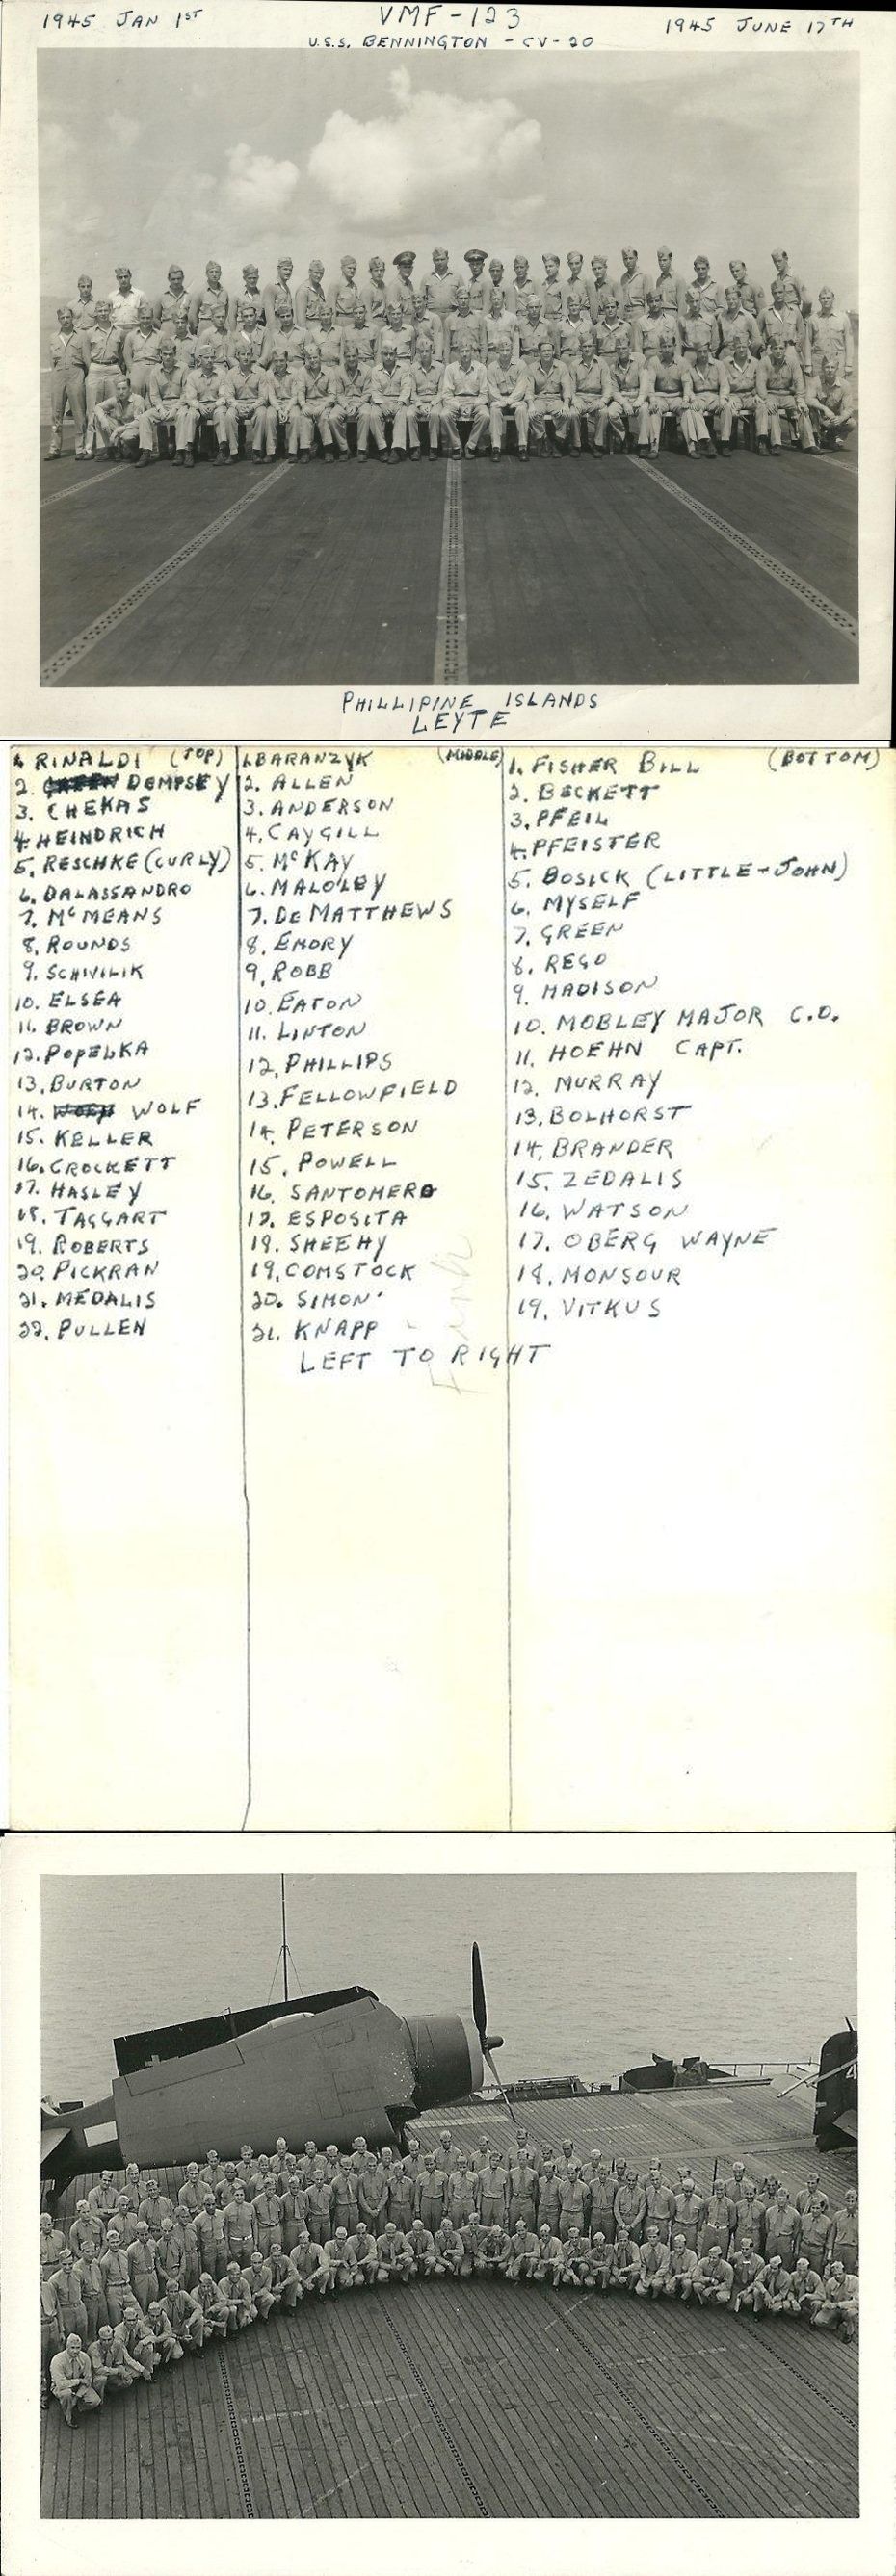 1945 JAN 1ST
VMF-123
1945 JUNE 17TH
U.S.S. BENNINGTON - CV-20
PHILLIPINE ISLANDS
LEYTE
1. RINALDI (TOP)
2. DEMPSEY
3. CHEKAS
4. HEINDRICH
5. RESCHKE (CURLY)
6. DALASSANDRO
7. McMEANS
8. ROUNDS
9. SCHIVILIK
10. ELSEA
11. BROWN
12. POPELKA
13. BURTON
14. WOLF
15. KELLER
16. CROCKETT
17. HASLEY
18. TAGGART
19. ROBERTS
20. PICKRAN
21. MEDALIS
22. PULLEN
1. BARANZYK (MIDDLE)
2. ALLEN
3. ANDERSON
4. CAYGILL
5. McKAY
6. MALOLEY
7. DeMATTHEWS
8. EMORY
9. ROBB
10. EATON
11. LINTON
12. PHILLIPS
13. FELLOWFIELD
14. PETERSON
15. POWELL
16. SANTOMERO
17. ESPOSITA
18. SHEEHY
19. COMSTOCK
20. SIMON
21. KNAPP
1. FISHER BILL (BOTTOM)
2. BECKETT
3. PFEIL
4. PFEISTER
5. BOSICK (LITTLE-JOHN)
6. MYSELF
7. GREEN
8. REGO
9. MADISON
10. MOBLEY MAJOR C.O.
11. HOEHN CAPT.
12. MURRAY
13. BOLHORST
14. BRANDER
15. ZEDALIS
16. WATSON
17. OBERG WAYNE
18. MONSOUR
19. VITKUS
LEFT TO RIGHT
4